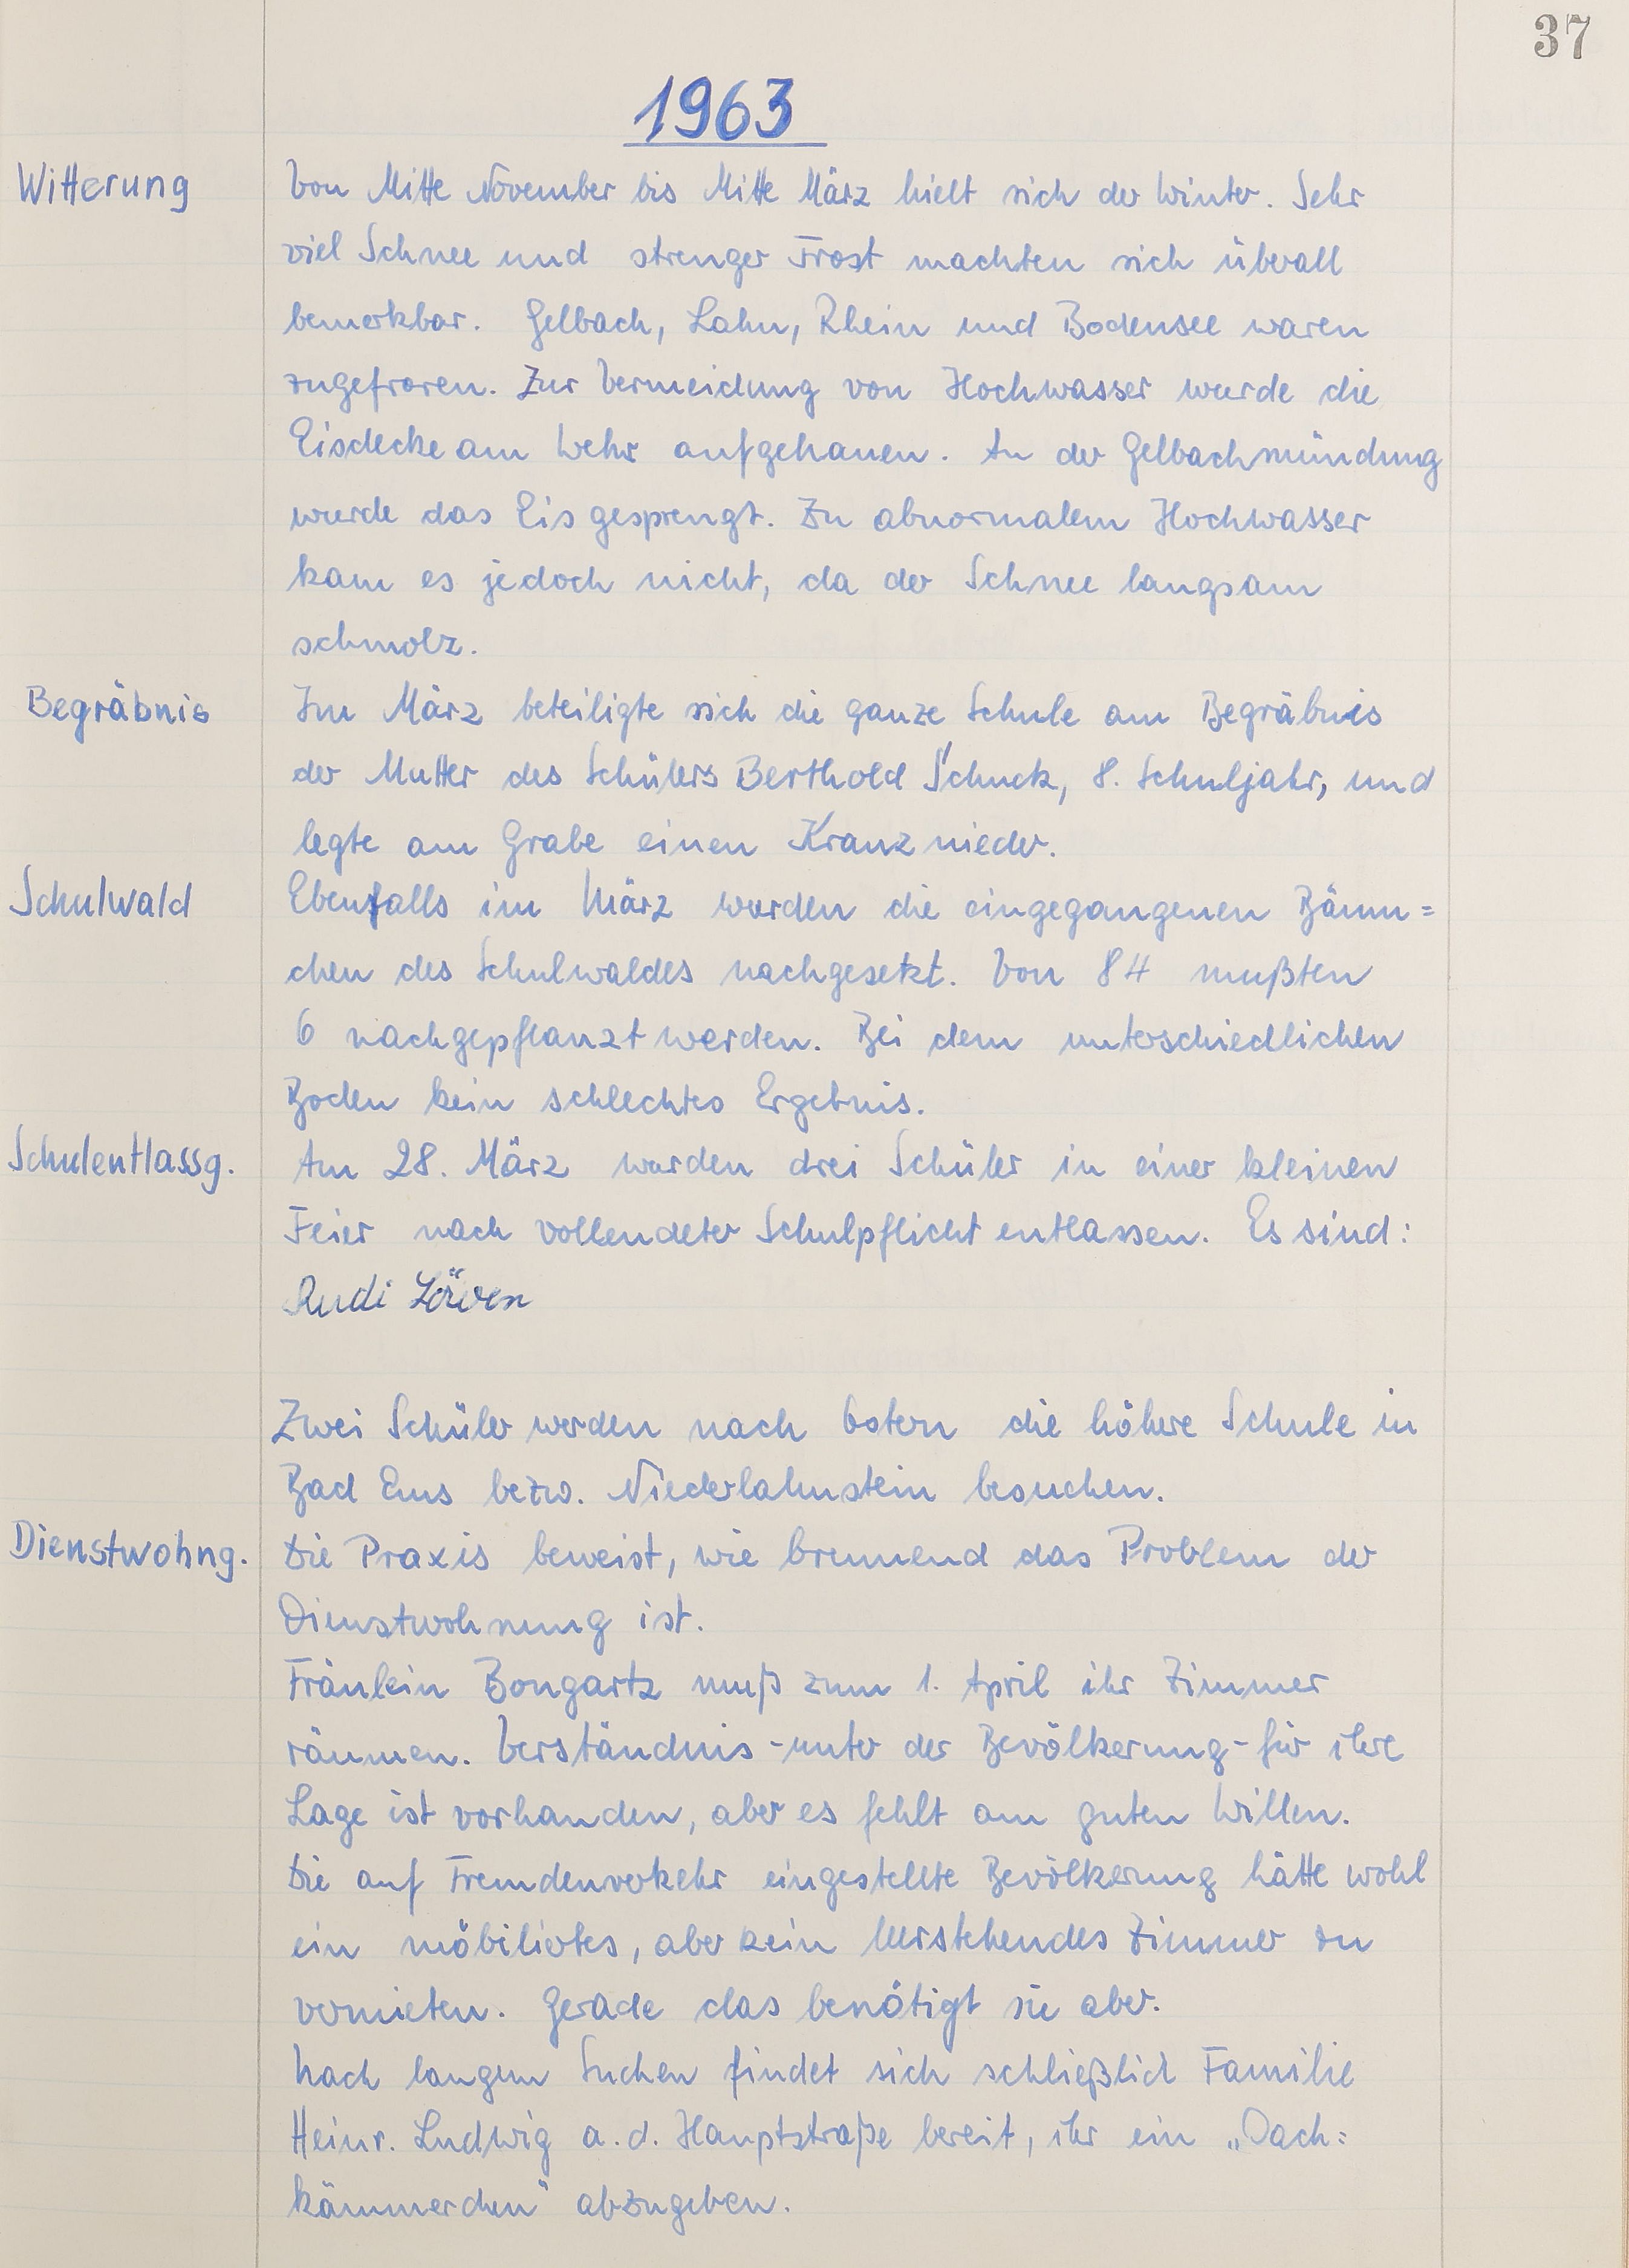 37
1963
Witterung
Von Mitte November bis Mitte März hielt sich der Winter. Sehr
viel Schnee und strenger Frost machten sich überall
bemerkbar. Gelbach, Lahn, Rhein und Bodensee waren
zugefroren. Zur Vermeidung von Hochwasser wurde die
Eisdecke am Wehr aufgehauen. An der Gelbachmündung
wurde das Eis gesprengt. Zu abnormalem Hochwasser
kam es jedoch nicht, da der Schnee langsam
schmolz.
Begräbnis
Im März beteiligte sich die ganze Schule am Begräbnis
der Mutter des Schülers Berthold Schuck, 8. Schuljahr, und
legte am Grabe einen Kranz nieder.
Schulwald
Ebenfalls im März wurden die eingegangenen Bäum=
chen des Schulwaldes nachgesetzt. Von 84 mußten
6 nachgepflanzt werden. Bei dem unterschiedlichen
Boden kein schlechtes Ergebnis.
Schulentlassg.
Am 28. März wurden drei Schüler in einer kleinen
Feier nach vollendeter Schulpflicht entlassen. Es sind:
Rudi Löwen
Zwei Schüler werden nach Ostern die höhere Schule in
Bad Ems bezw. Niederlahnstein besuchen.
Dienstwohng.
Die Praxis beweist, wie brennend das Problem der
Dienstwohnung ist.
Fräulein Bongartz muß zum 1. April ihr Zimmer
räumen. Verständnis - unter der Bevölkerung - für ihre
Lage ist vorhanden, aber es fehlt am guten Willen.
Die auf Fremdenverkehr eingestellte Bevölkerung hätte wohl
ein möbiliertes, aber kein leerstehendes Zimmer zu
vermieten. Gerade das benötigt sie aber.
Nach langem Suchen findet sich schließlich Familie
Heinr. Ludwig a. d. Hauptstraße bereit, ihr ein „Dach=
kämmerchen" abzugeben.